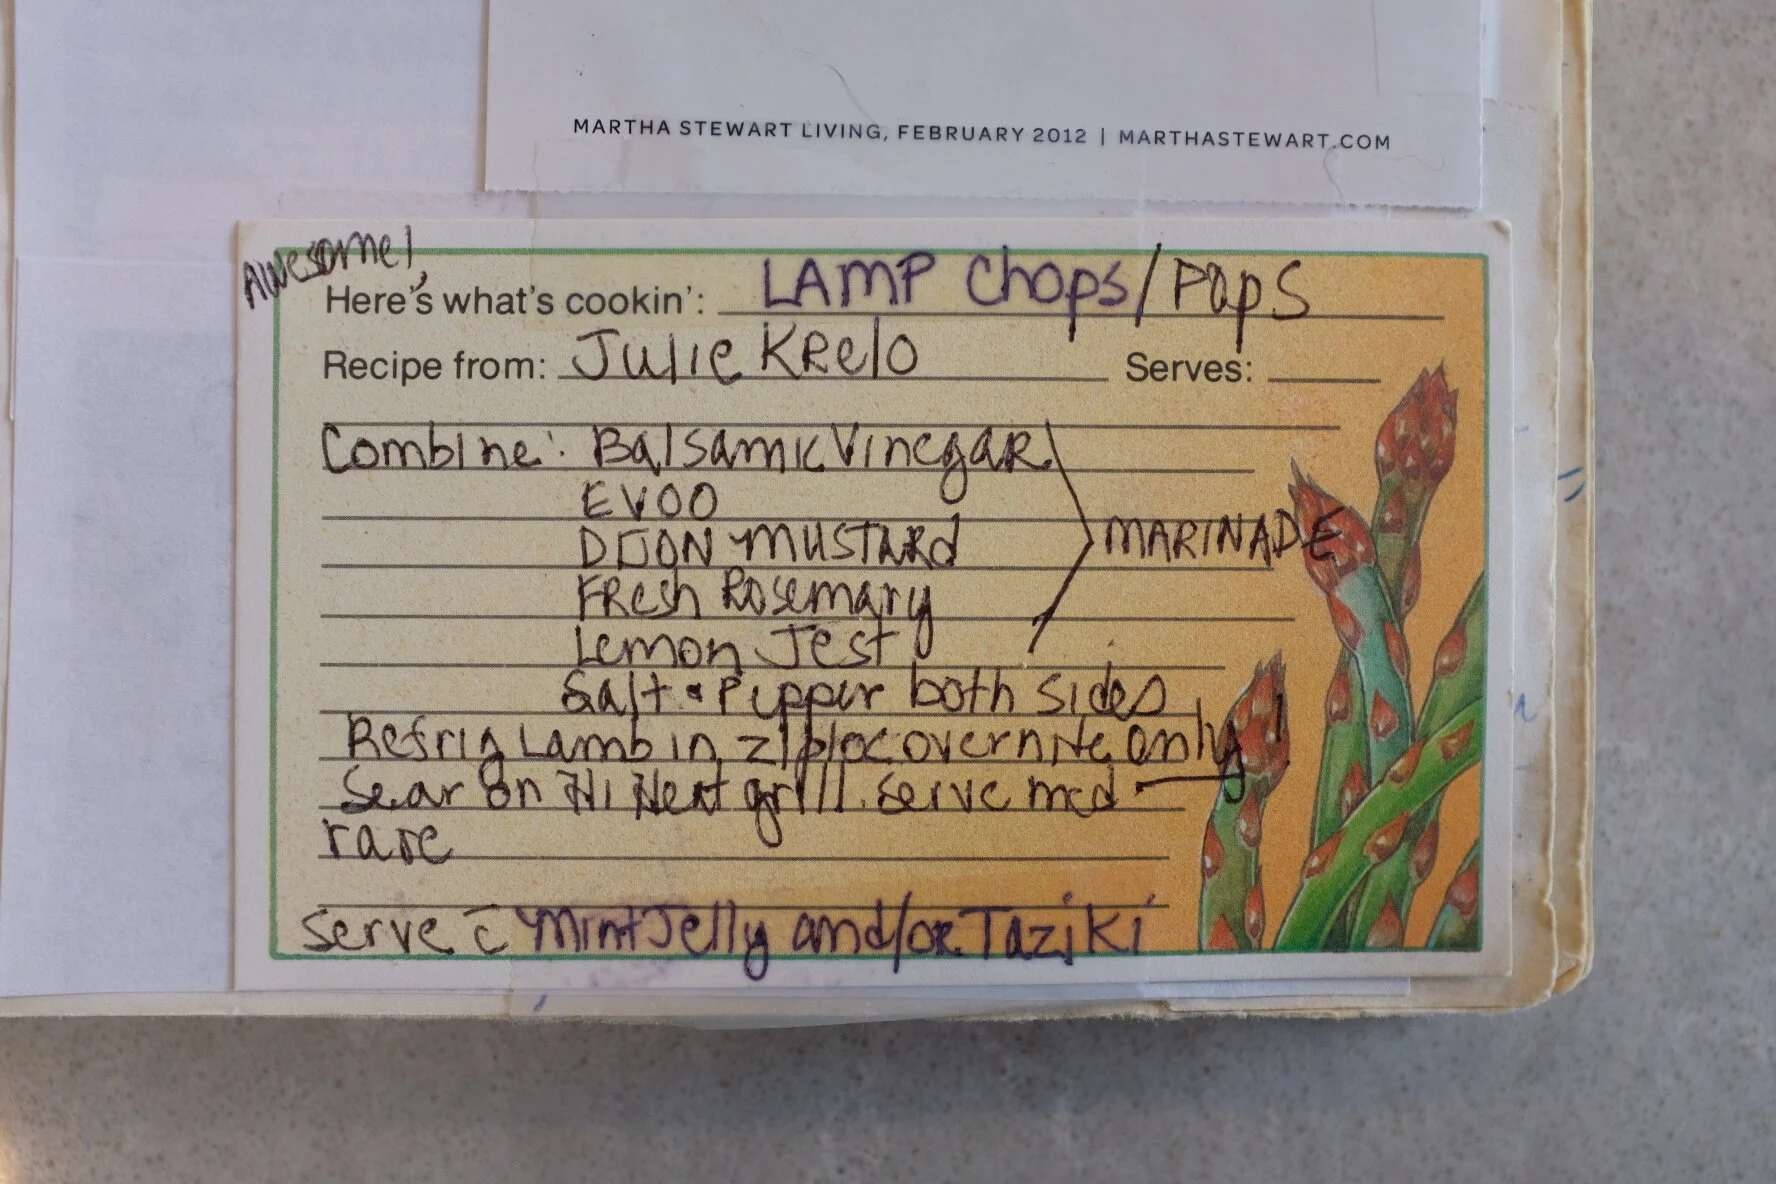 MARTHA STEWART LIVING, FEBRUARY 2012 | MARTHASTEWART.COM
Awesome!
Here's what's cookin': LAMP Chops/Pops
Recipe from: Julie KRelo Serves:
Combine: Balsamic Vinegar
EVOO
DIJON MUSTARd
MARINADE
FResh Rosemary
Lemon Jest
Salt & Pepper both sides
Refrig Lamb in ziploc overnite only!
Sear on Hi Heat grill. Serve med -
rare
Serve c̄ Mint Jelly and/or Taziki